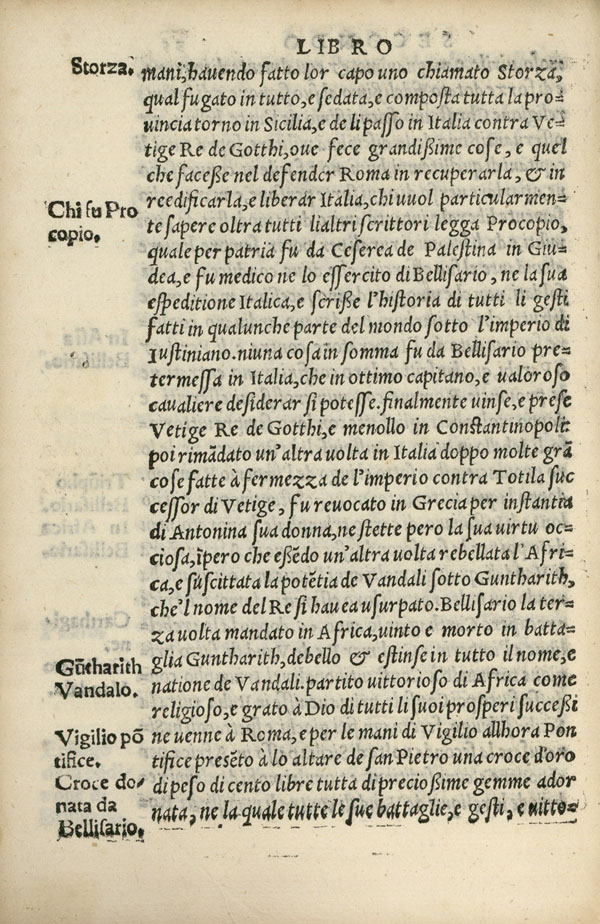 LIBRO
Storza.
mani, havendo fatto lor capo uno chiamato Storza,
qual fugato in tutto, e sedata, e composta tutta la pro=
uincia torno in Sicilia, e de li passo in Italia contra Ve=
tige Re de Gotthi, oue fece grandißime cose, e quel
che faceße nel defender Roma in recuperarla, & in
reedificarla, e liberar Italia, chi uuol particularmen=
Chi fu Pro
copio.
te sapere oltra tutti li altri scrittori legga Procopio,
quale per patria fu da Ceserea de Palestina in Giu=
dea, e fu medico ne lo essercito di Bellisario, ne la sua
espeditione Italica, e scriße l'historia di tutti li gesti
fatti in qualunche parte del mondo sotto l'imperio di
Iustiniano. niuna cosa in somma fu da Bellisario pre=
termessa in Italia, che in ottimo capitano, e valoroso
caualiere desiderar si potesse. finalmente uinse, e prese
Vetige Re de Gotthi, e menollo in Constantinopoli:
poi rimãdato un'altra volta in Italia doppo molte grã
cose fatte à fermezza de l'imperio contra Totila suc
cessor di Vetige, fu reuocato in Grecia per instantia
di Antonina sua donna, ne stette pero la sua uirtu oc=
ciosa, ĩpero che eßẽdo un'altra uolta rebellata l'Afri=
ca, e suscittata la potẽtia de Vandali sotto Guntharith,
che'l nome del Re si hauea usurpato. Bellisario la ter=
za uolta mandato in Africa, uinto e morto in batta=
Gũtharith
Vandalo.
glia Guntharith, debello & estinse in tutto il nome, e
natione de Vandali. partito uittorioso di Africa come
religioso, e grato à Dio di tutti li suoi prosperi succeßi
Vigilio põ
tifice.
ne uenne à Roma, e per le mani di Vigilio allhora Pon
tifice presẽto à lo altare de san Pietro una croce d'oro
Croce do=
nata da
Bellisario.
di peso di cento libre tutta di precioßime gemme ador
nata, ne la quale tutte le sue battaglie, e gesti, e uitto=